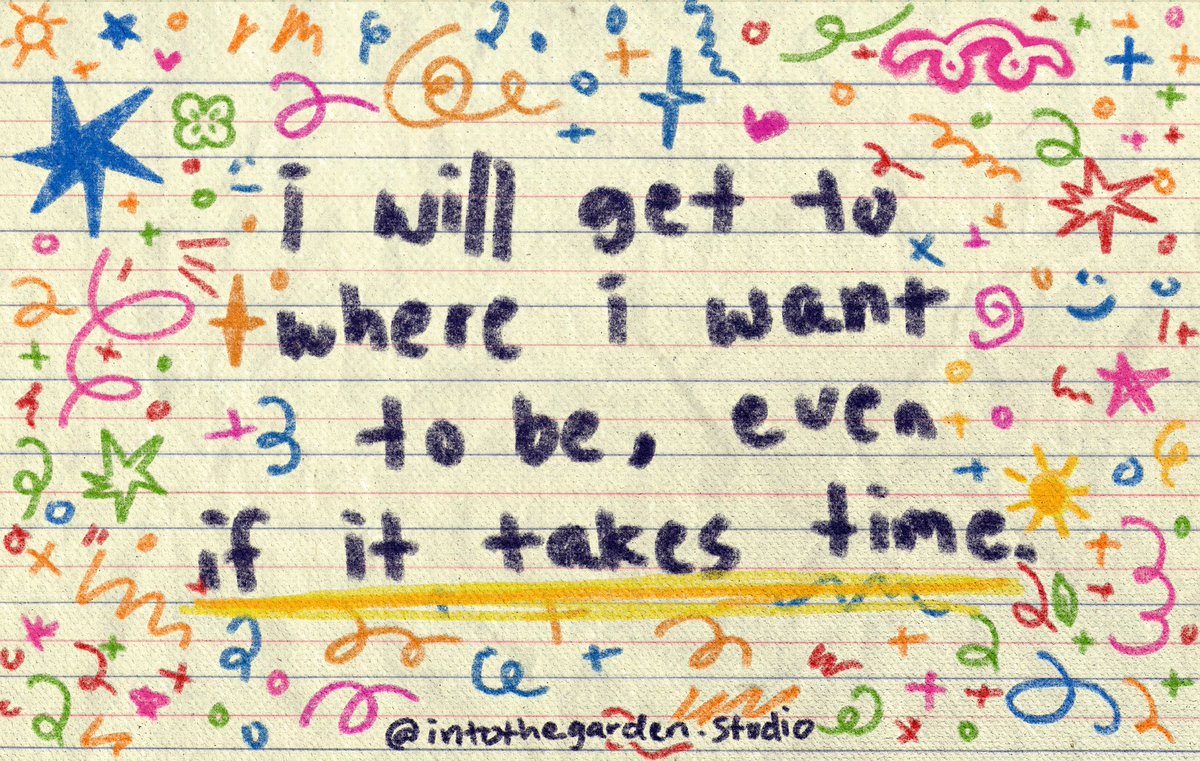 i will get to
where i want
to be, even
if it takes time.
@intothegarden.studio